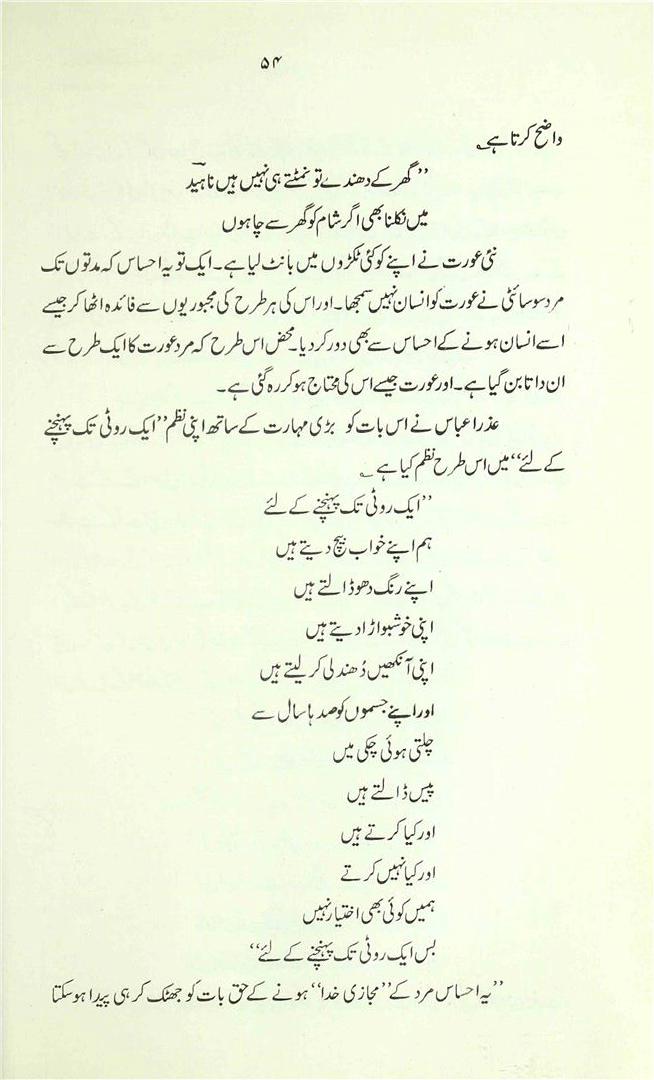 ۵۴
واضح کرتا ہے ؎
’’گھر کے دھندے تو نمٹتے ہی نہیں ہیں ناہیدؔ
میں نکلنا بھی اگر شام کو گھر سے چاہوں
نئی عورت نے اپنے کو کئی ٹکڑوں میں بانٹ لیا ہے۔ ایک تو یہ احساس کہ مدتوں تک
مرد سوسائٹی نے عورت کو انسان نہیں سمجھا۔ اور اس کی ہر طرح کی مجبوریوں سے فائدہ اٹھا کر جیسے
اسے انسان ہونے کے احساس سے بھی دور کر دیا۔ محض اس طرح کہ مرد عورت کا ایک طرح سے
ان داتا بن گیا ہے۔ اور عورت جیسے اس کی محتاج ہو کر رہ گئی ہے۔
عذرا عباس نے اس بات کو بڑی مہارت کے ساتھ اپنی نظم ’’ایک روٹی تک پہنچنے
کے لئے‘‘ میں اس طرح نظم کیا ہے ؎
’’ایک روٹی تک پہنچنے کے لئے
ہم اپنے خواب بیچ دیتے ہیں
اپنے رنگ دھو ڈالتے ہیں
اپنی خوشبو اڑا دیتے ہیں
اپنی آنکھیں دُھندلی کر لیتے ہیں
اور اپنے جسموں کو صدہا سال سے
چلتی ہوئی چکی میں
پیس ڈالتے ہیں
اور کیا کرتے ہیں
اور کیا نہیں کرتے
ہمیں کوئی بھی اختیار نہیں
بس ایک روٹی تک پہنچنے کے لئے‘‘
’’یہ احساس مرد کے ’’مجازی خدا‘‘ ہونے کے حق بات کو جھٹک کر ہی پیدا ہو سکتا